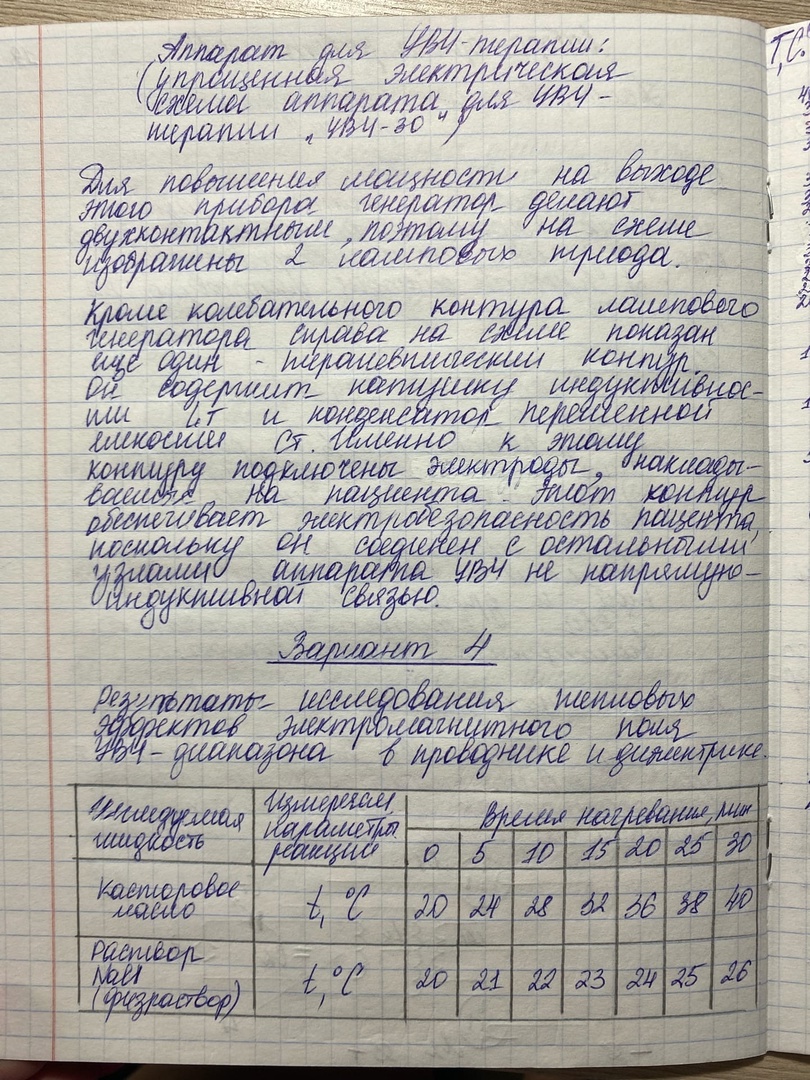 Аппарат для УВЧ-терапии:
(упрощенная электрическая
схема аппарата для УВЧ-
терапии „УВЧ-30")
Для повышения мощности на выходе
этого прибора генератор делают
двухконтактным, поэтому на схеме
изображены 2 ламповых триода.
Кроме колебательного контура лампового
генератора справа на схеме показан
еще один - терапевтический контур.
Он содержит катушку индуктивнос-
ти LT и конденсатор переменной
емкости Ст. Именно к этому
контуру подключены электроды, наклады-
ваемые на пациента. Этот контур
обеспечивает электробезопасность пациента,
поскольку он соединен с остальными
узлами аппарата УВЧ не напрямую-
индуктивной связью.
Вариант 4
Результаты исследования тепловых
эффектов электромагнитного поля
УВЧ-диапазона в проводнике и диэлектрике.
Время нагревания, мин
жидкость параметры реакции 0 5 10 15 20 25 30
Касторовое масло t, °C 20 24 28 32 36 38 40
Раствор NaCl (физраствор) t, °C 20 21 22 23 24 25 26
T, C°